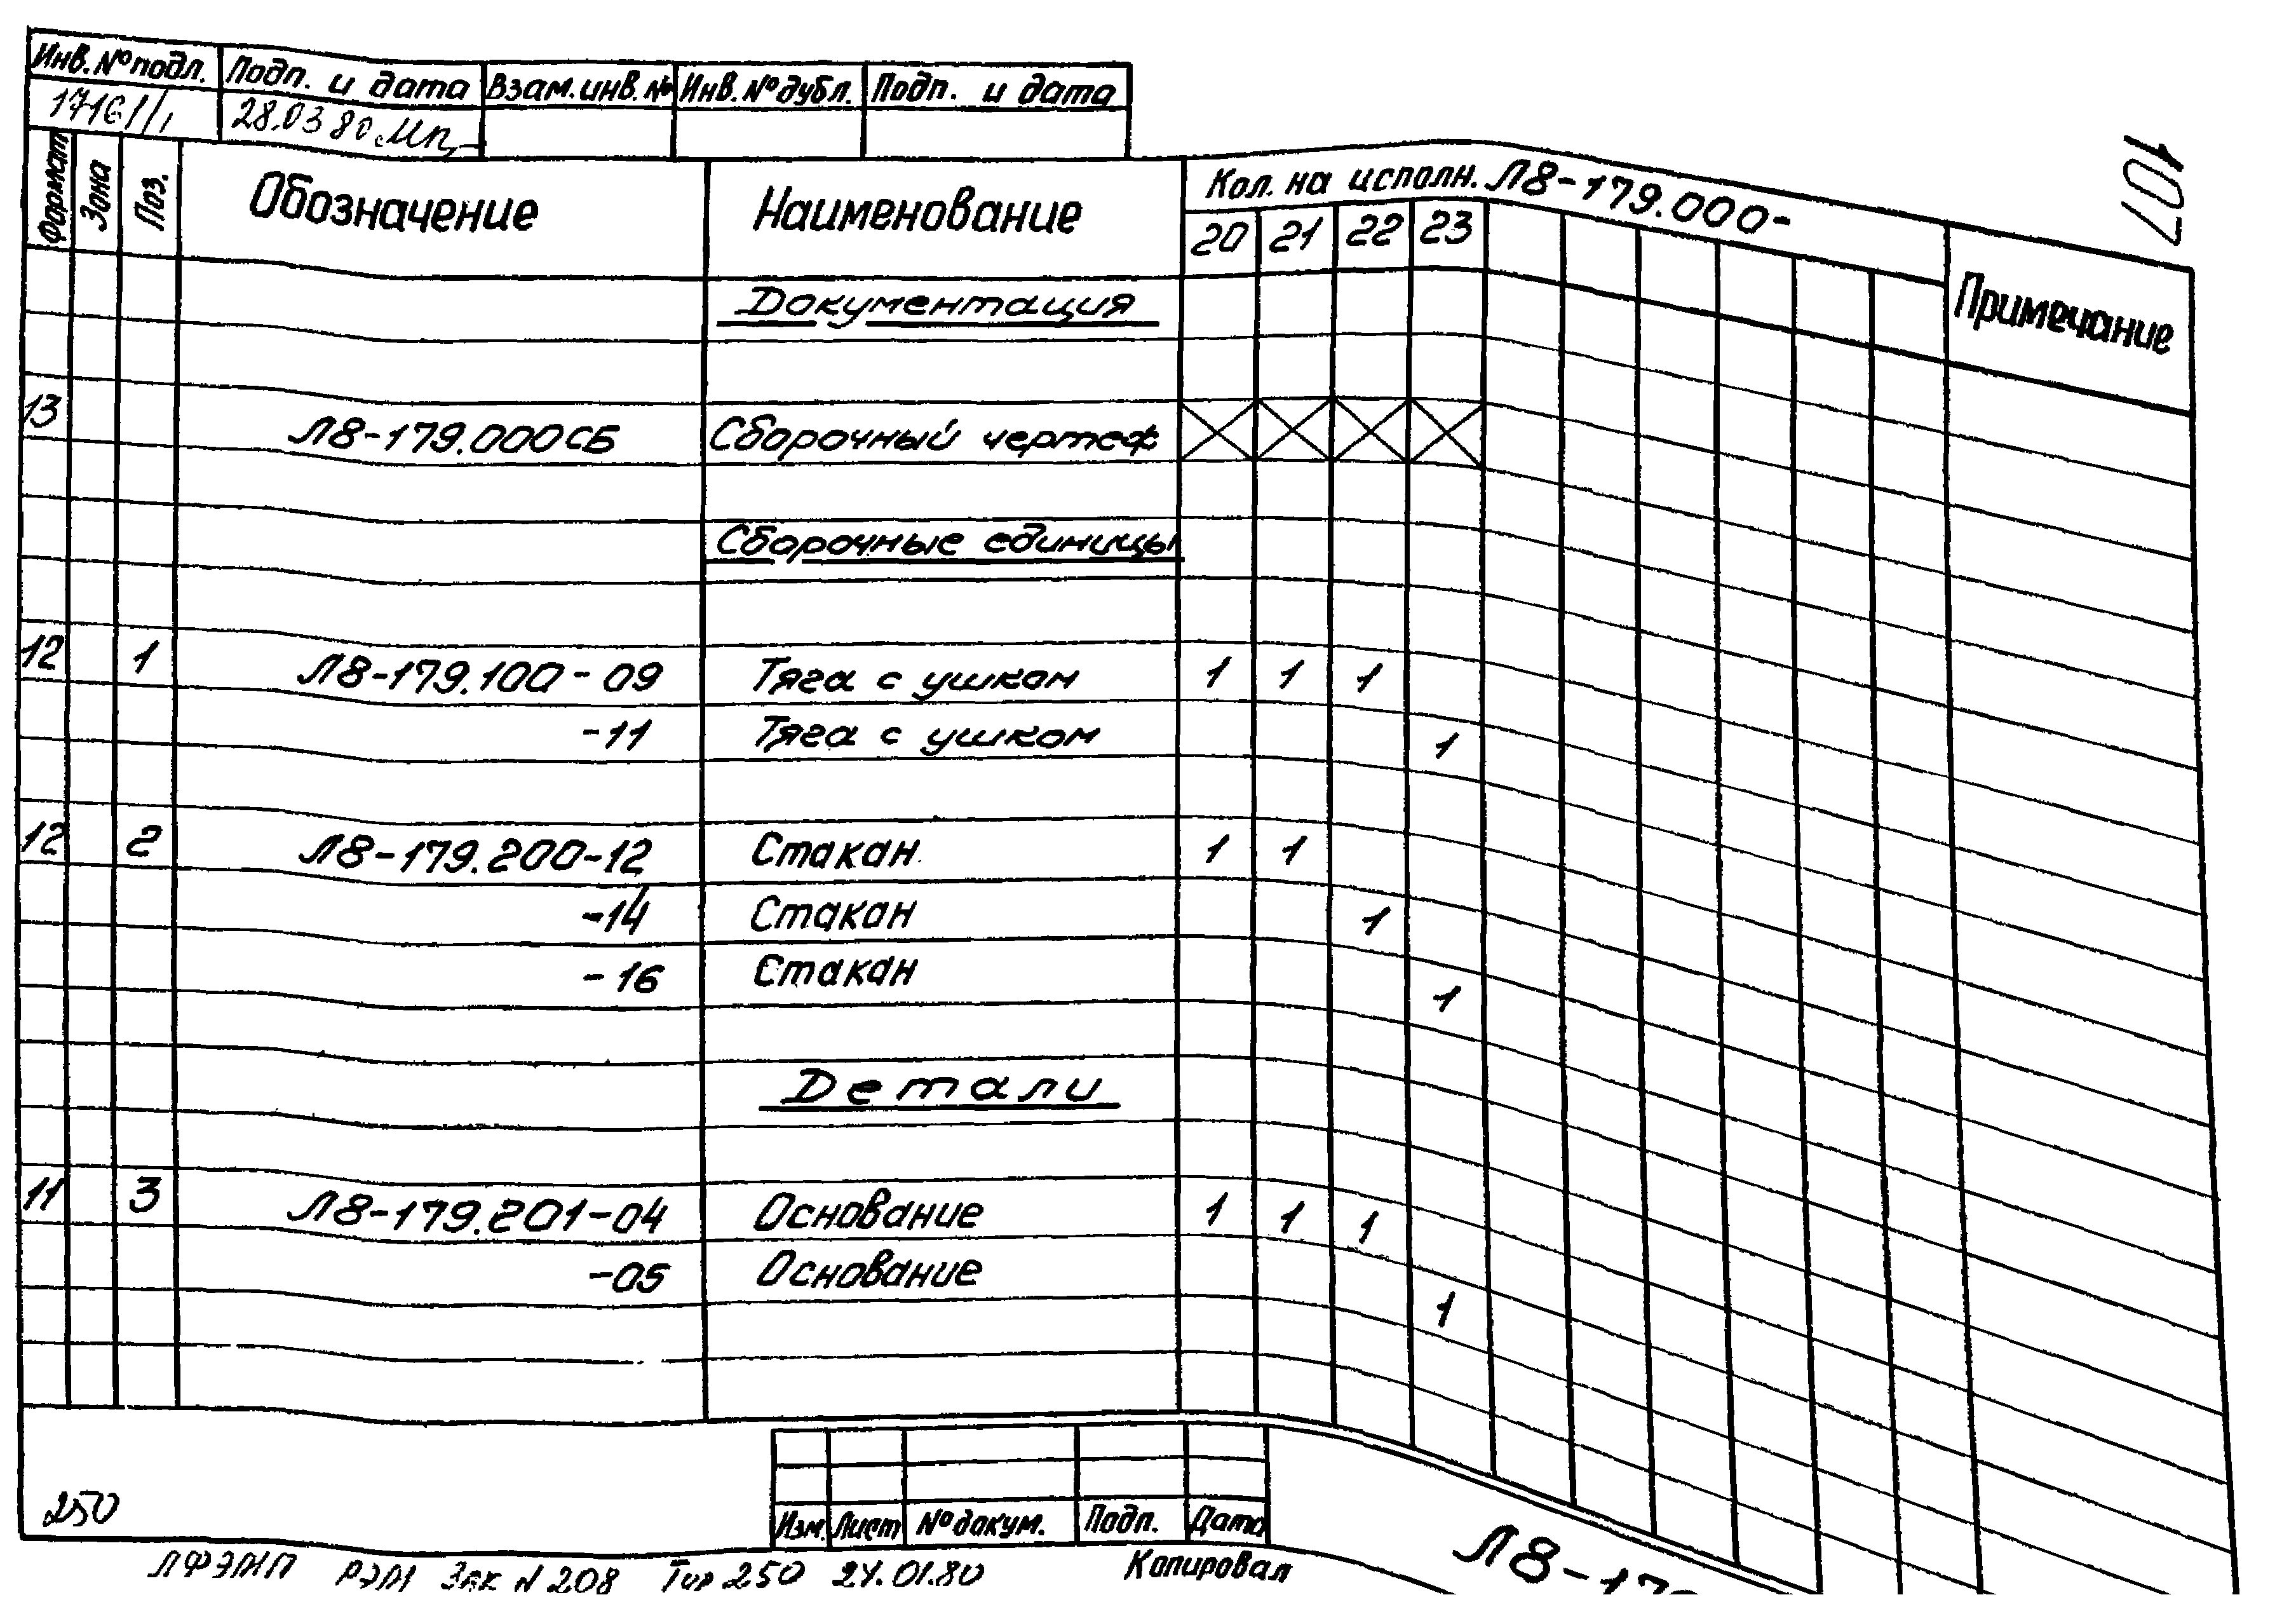 Инв. № подл. Подп. и дата Взам. инв. № Инв. № дубл. Подп. и дата
28.03 80
107
Формат Зона Поз. Обозначение Наименование Кол. на исполн. Л8-179.000- Примечание
20 21 22 23
Документация
13 Л8-179.000СБ Сборочный чертеж
Сборочные единицы
12 1 Л8-179.100-09 Тяга с ушком 1 1 1
-11 Тяга с ушком 1
12 2 Л8-179.200-12 Стакан 1 1
-14 Стакан 1
-16 Стакан 1
Детали
11 3 Л8-179.201-04 Основание 1 1 1
-05 Основание 1
Изм. Лист № докум. Подп. Дата
250
Копировал
Л8-179
ЛФЭМП РЭМ Зак N 208 Тир 250 24.01.80